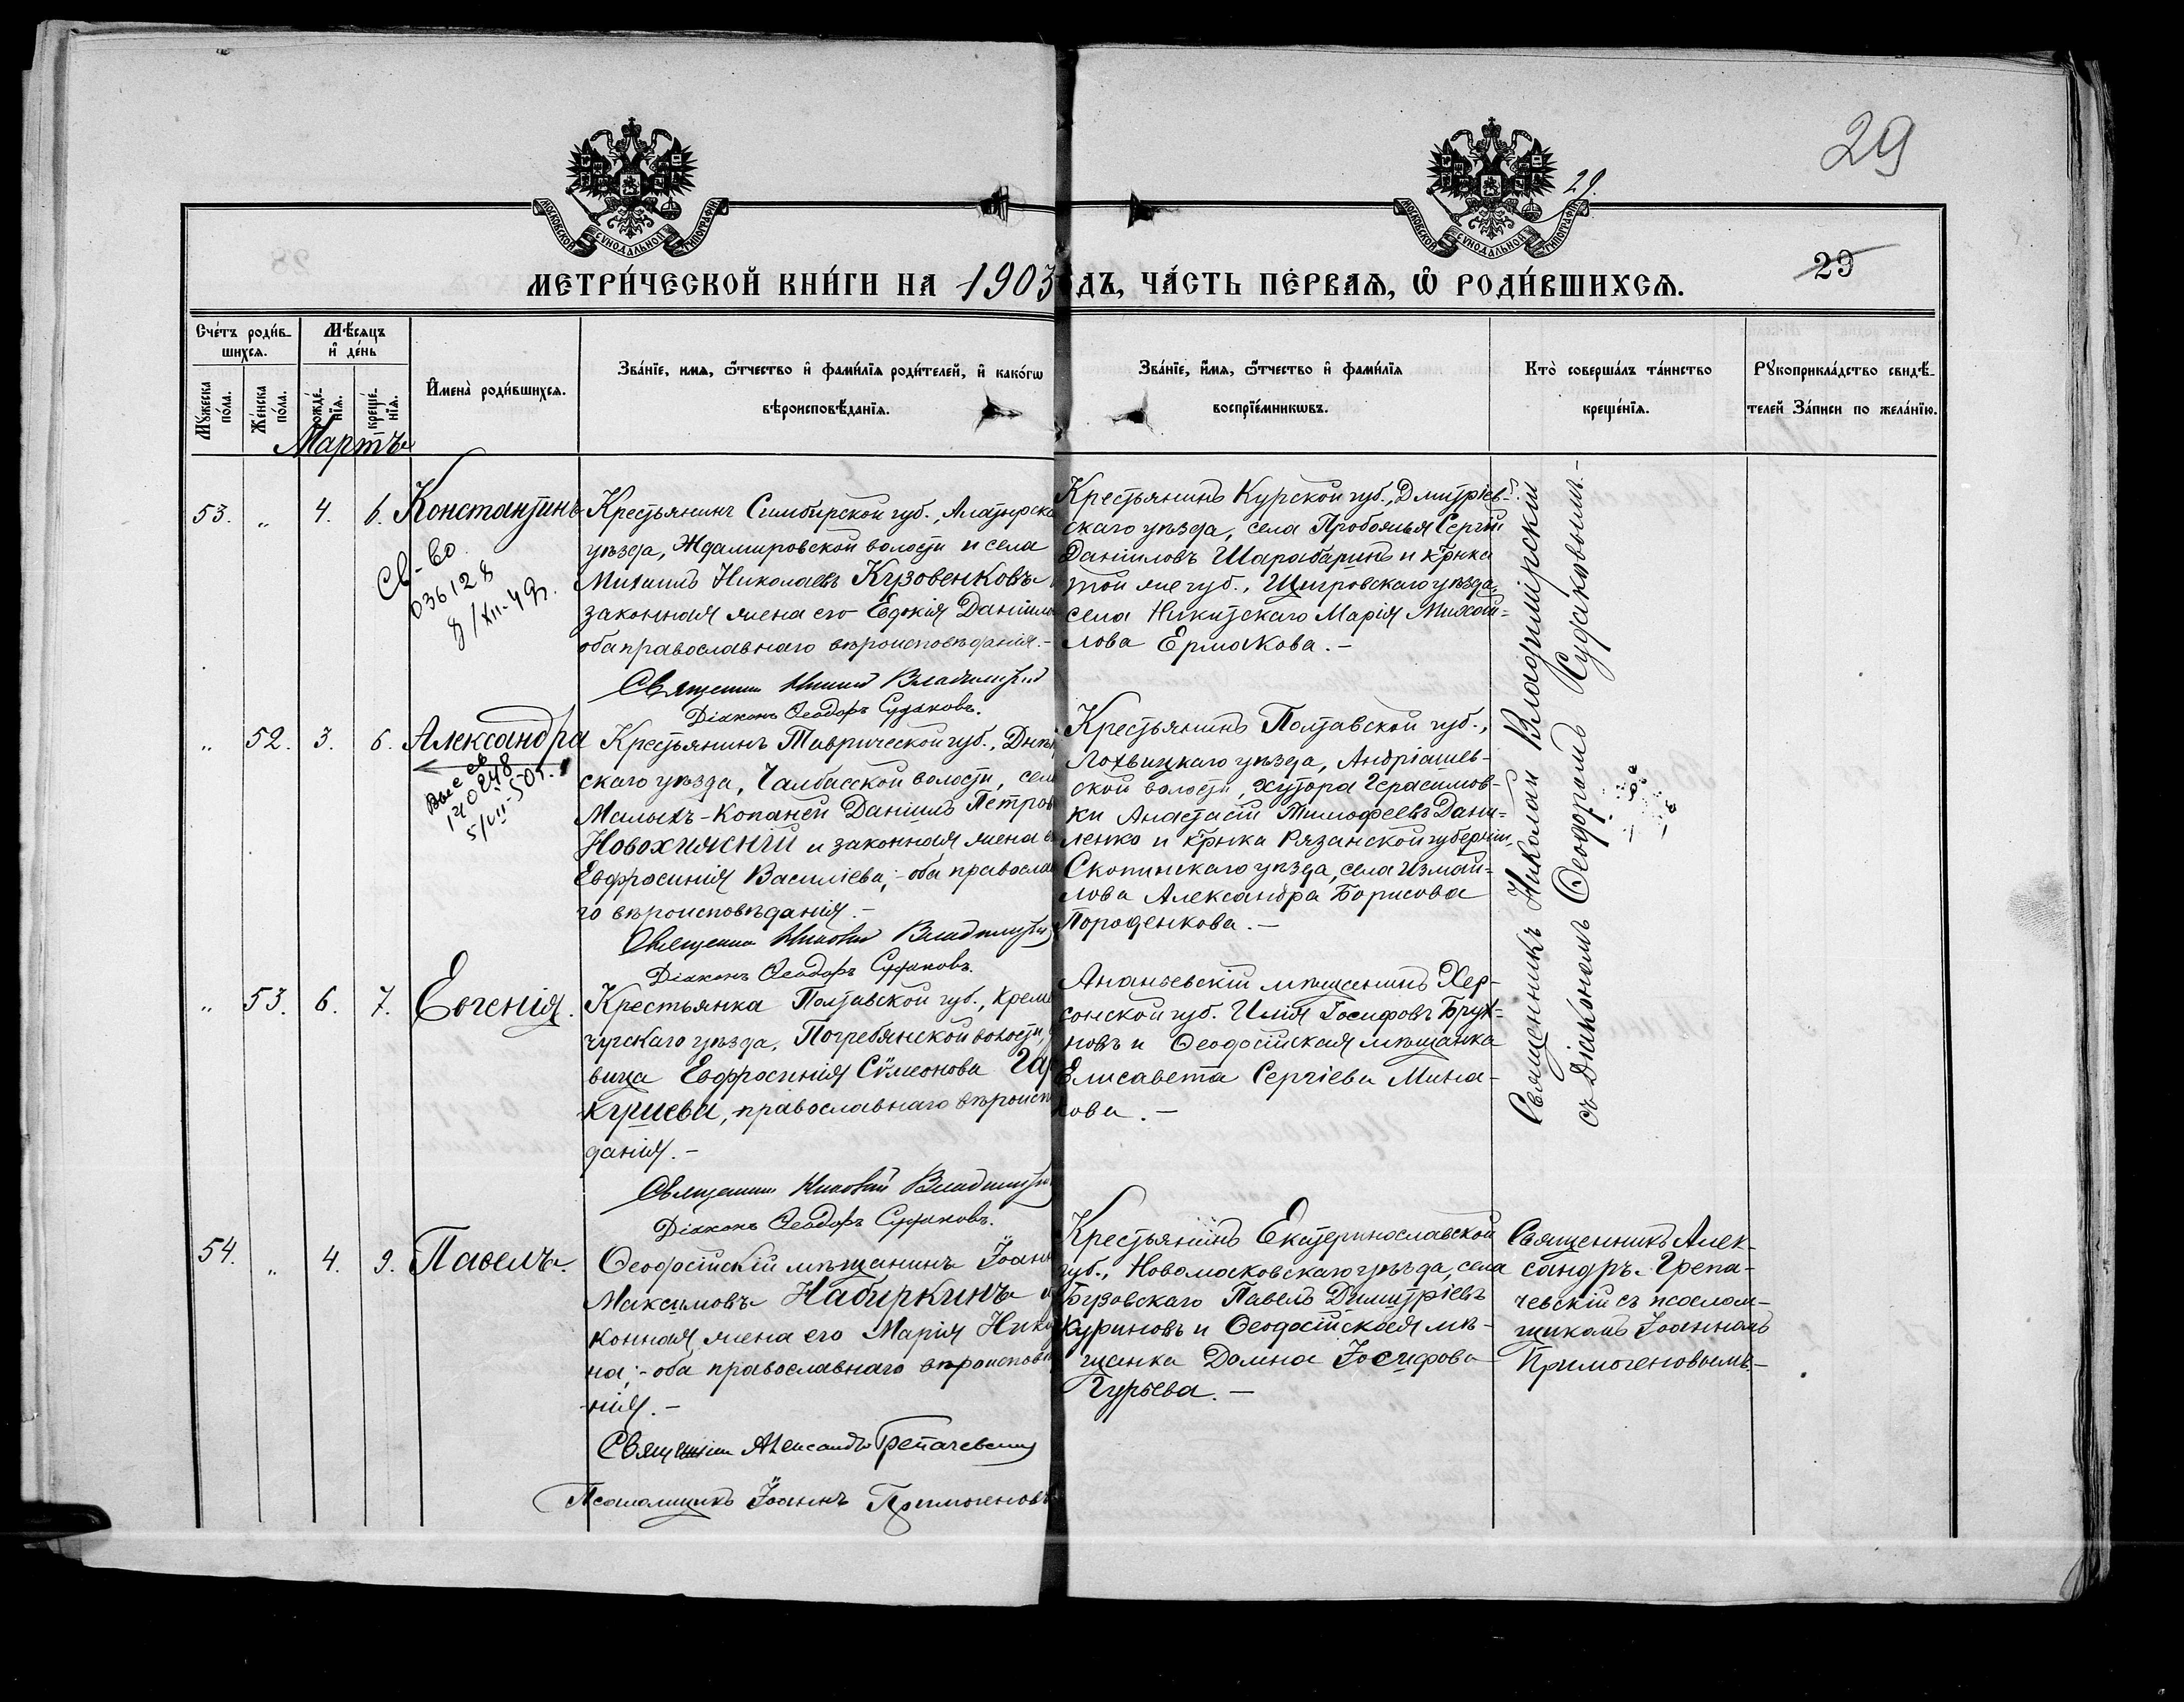 29
29.
МОСКОВСКОЙ СѴНОДАЛЬНОЙ ТИПОГРАФІИ
МОСКОВСКОЙ СѴНОДАЛЬНОЙ ТИПОГРАФІИ
29
МЕТРИ́ЧЕСКОЙ КНИ́ГИ НА 1903
ДЪ, ЧА́СТЬ ПЕ́РВАѦ, Ѡ҆ РОДИ́ВШИХСѦ.
Сче́тъ роди́в-
шихсѧ.
Мѣ́сѧцъ
и҆ де́нь
Мꙋ́жеска
по́ла.
Же́нска
по́ла.
рожде́-
нїѧ.
креще́-
нїѧ.
И҆мена̀ роди́вшихсѧ.
Зва́нїе, имѧ, ѿтчество и҆ фами́лїѧ роди́телей, и҆ како́гѡ
вѣроисповѣ́данїѧ.
Зва́нїе, и҆́мѧ, ѿтчество и҆ фами́лїѧ
воспрїе́мникѡвъ.
Кто̀ соверша́лъ та́инство
креще́нїѧ.
Рꙋкоприкла́дство свидѣ́-
телей За́писи по жела́нїю.
Мартъ
53. „ 4. 6. Константинъ
Св-во
036128
8/XII-49г.
Крестьянинъ Симбирской губ., Алатырска
уѣзда, Ждамировской волости и села
Михаилъ Николаевъ Кузовенковъ
законная жена его Евдокія Даніило
оба православнаго вѣроисповѣданія.-
Священник Николай Владимірскій
Діаконъ Ѳеодоръ Судаковъ.
Крестьянинъ Курской губ., Дмитріев-
скаго уѣзда, села Пробожья Сергій
Даніиловъ Шарабаринъ и кр-нка
той же губ., Щигровскаго уѣзда,
села Никитскаго Марія Михай-
лова Ермакова.-
Священникъ Николай Владимірскій
съ Діакономъ Ѳеодоромъ Судаковымъ.-
„ 52. 3. 6. Александра
Выс св
140248
5/VII-05г.
Крестьянинъ Таврической губ., Днѣп
скаго уѣзда, Чалбасской волости, сел
Малыхъ-Копаней Даніилъ Петров
Новохижній и законная жена е
Евфросинія Василіева;-оба правосла
го вѣроисповѣданія.-
Священник Николай Владимірскій
Діаконъ Ѳеодоръ Судаковъ.
Крестьянинъ Полтавской губ.,
Лохвицкаго уѣзда, Андріашев-
ской волости, хутора Герасимов-
ки Анастасій Тимофеевъ Дани-
ленко и кр-нка Рязанской губерніи,
Скопинскаго уѣзда, села Измай-
лова Александра Борисова
Породенкова.-
„ 53. 6. 7. Евгенія.
Крестьянка Полтавской губ., Креме
чугскаго уѣзда, Погребянской волости,
вица Евфросинія Сѵмеонова Гар
кушева, православнаго вѣроиспо
данія.-
Священник Николай Владимірскій
Діаконъ Ѳеодоръ Судаковъ.
Ананьевскій мѣщанинъ Хер-
сонской губ. Илія Іосифовъ Брух-
новъ и Ѳеодосійская мѣщанка
Елисавета Сергіева Мина-
кова.-
54. „ 4. 9. Павелъ.
Ѳеодосійскій мѣщанинъ Іоанн
Максимовъ Набиркинъ
конная жена его Марія Ники
на;-оба православнаго вѣроисповѣ
нія.-
Священник Александръ Грепачевскій
Псаломщикъ Іоаннъ Примогеновъ
Крестьянинъ Екатеринославской
губ., Новомосковскаго уѣзда, села
Бузовскаго Павелъ Димитріевъ
Куриновъ и Ѳеодосійская мѣ-
щанка Домна Іосифова
Гурьева.-
Священникъ Алек-
сандръ Грепа-
чевскій съ псалом-
щикомъ Іоанномъ
Примогеновымъ.-